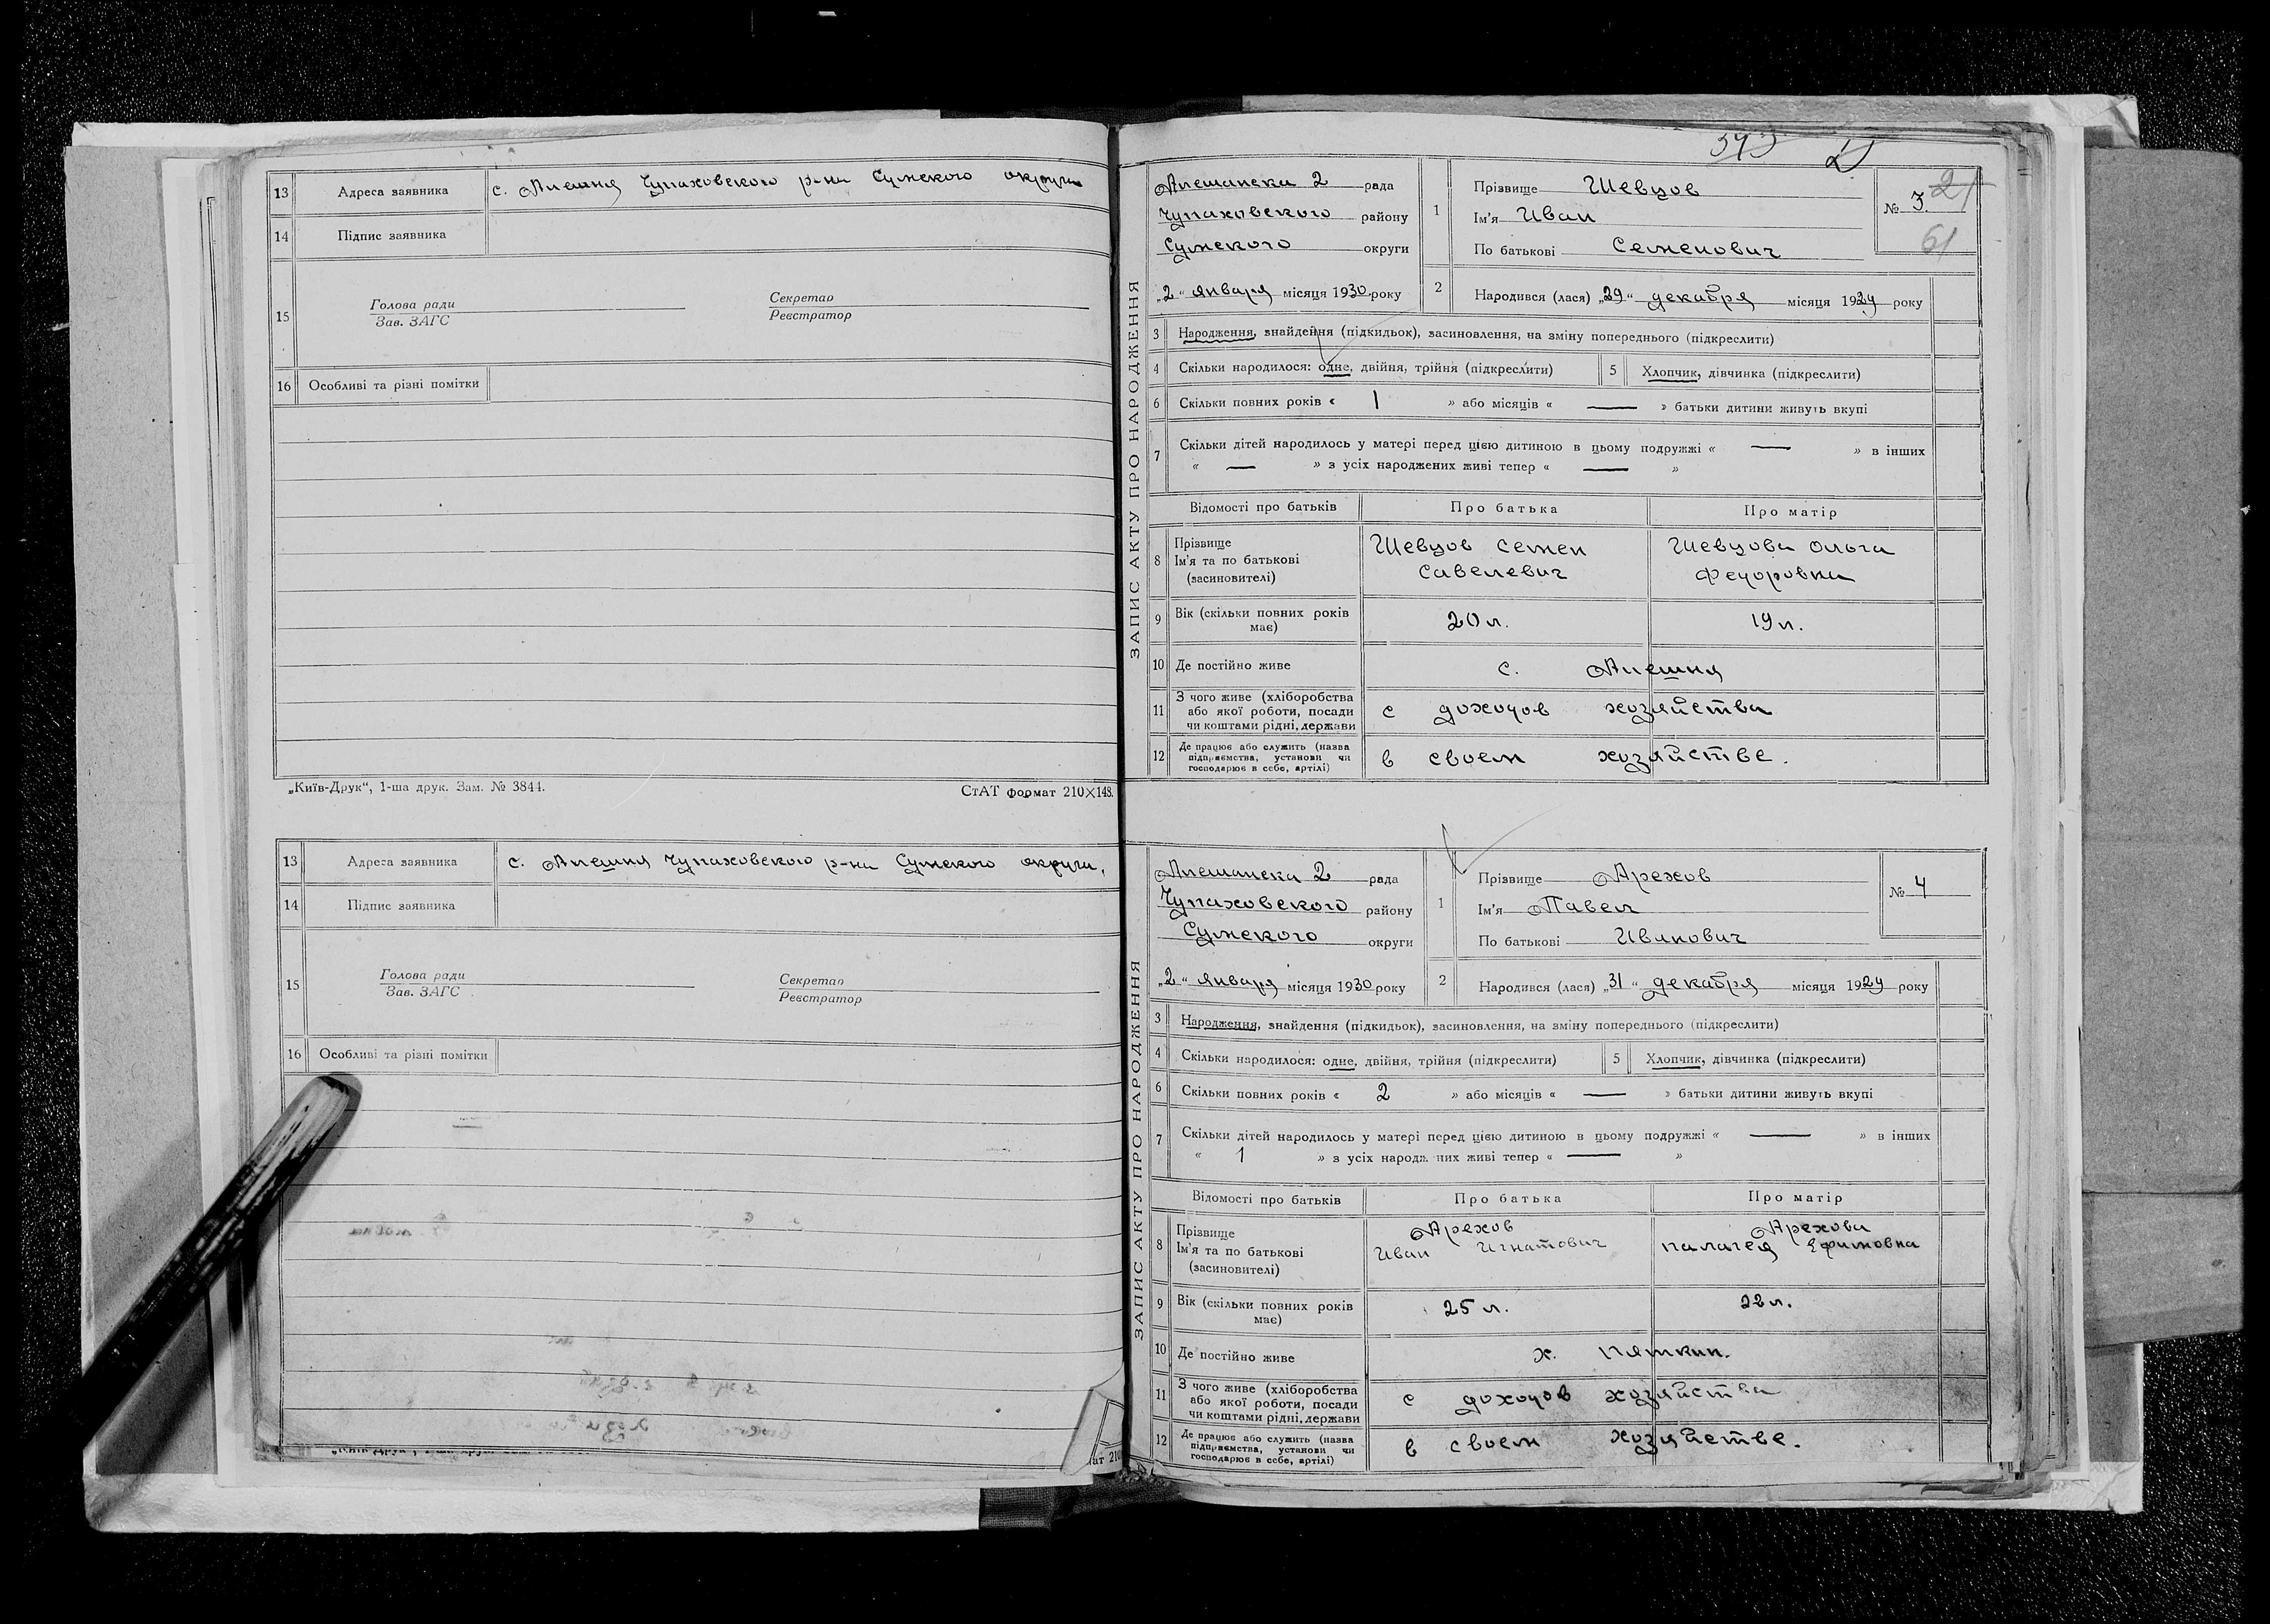 13 Адреса заявника с. Алешня Чупаховского р-на Сумского округа
14 Підпис заявника
15 Голова ради Секретар
Зав. ЗАГС Реєстратор
16 Особливі та різні помітки
„Київ-Друк“, 1-ша друк. Зам. № 3844. СтАТ формат 210×148.
13 Адреса заявника с. Алешня Чупаховского р-на Сумского округа,
14 Підпис заявника
15 Голова ради Секретар
Зав. ЗАГС Реєстратор
16 Особливі та різні помітки
343 21
ЗАПИС АКТУ ПРО НАРОДЖЕННЯ
Алешанска 2 рада
Чупаховского району
Сумского округи
„2“ января місяця 1930 року
1 Прізвище Шевцов
Ім'я Иван
По батькові Семенович
№ 3. 21
61
2 Народився (лася) „29“ декабря місяця 1929 року
3 Народження, знайдення (підкидьок), засиновлення, на зміну попереднього (підкреслити)
4 Скільки народилося: одне, двійня, трійня (підкреслити) 5 Хлопчик, дівчинка (підкреслити)
6 Скільки повних років « 1 » або місяців « — » батьки дитини живуть вкупі
7 Скільки дітей народилось у матері перед цією дитиною в цьому подружжі « — » в інших
« — » з усіх народжених живі тепер « — »
Відомості про батьків Про батька Про матір
8 Прізвище Ім'я та по батькові (засиновителі)
Шевцов Семен
Савелевич
Шевцова Ольга
Федоровна
9 Вік (скільки повних років має) 20 л. 19 л.
10 Де постійно живе с. Алешня
11 З чого живе (хліборобства або якої роботи, посади чи коштами рідні, держави с доходов хозяйства
12 Де працює або служить (назва підприємства, установи чи господарює в себе, артілі) в своем хозяйстве.
ЗАПИС АКТУ ПРО НАРОДЖЕННЯ
Алешанска 2 рада
Чупаховского району
Сумского округи
„2“ января місяця 1930 року
1 Прізвище Арехов
Ім'я Павел
По батькові Иванович
№ 4
2 Народився (лася) „31“ декабря місяця 1929 року
3 Народження, знайдення (підкидьок), засиновлення, на зміну попереднього (підкреслити)
4 Скільки народилося: одне, двійня, трійня (підкреслити) 5 Хлопчик, дівчинка (підкреслити)
6 Скільки повних років « 2 » або місяців « — » батьки дитини живуть вкупі
7 Скільки дітей народилось у матері перед цією дитиною в цьому подружжі « — » в інших
« 1 » з усіх народжених живі тепер « — »
Відомості про батьків Про батька Про матір
8 Прізвище Ім'я та по батькові (засиновителі)
Арехов
Иван Игнатович
Арехова
Палагея Ефимовна
9 Вік (скільки повних років має) 25 л. 22 л.
10 Де постійно живе х. Пяткин.
11 З чого живе (хліборобства або якої роботи, посади чи коштами рідні, держави с доходов хозяйства
12 Де працює або служить (назва підприємства, установи чи господарює в себе, артілі) в своем хозяйстве.